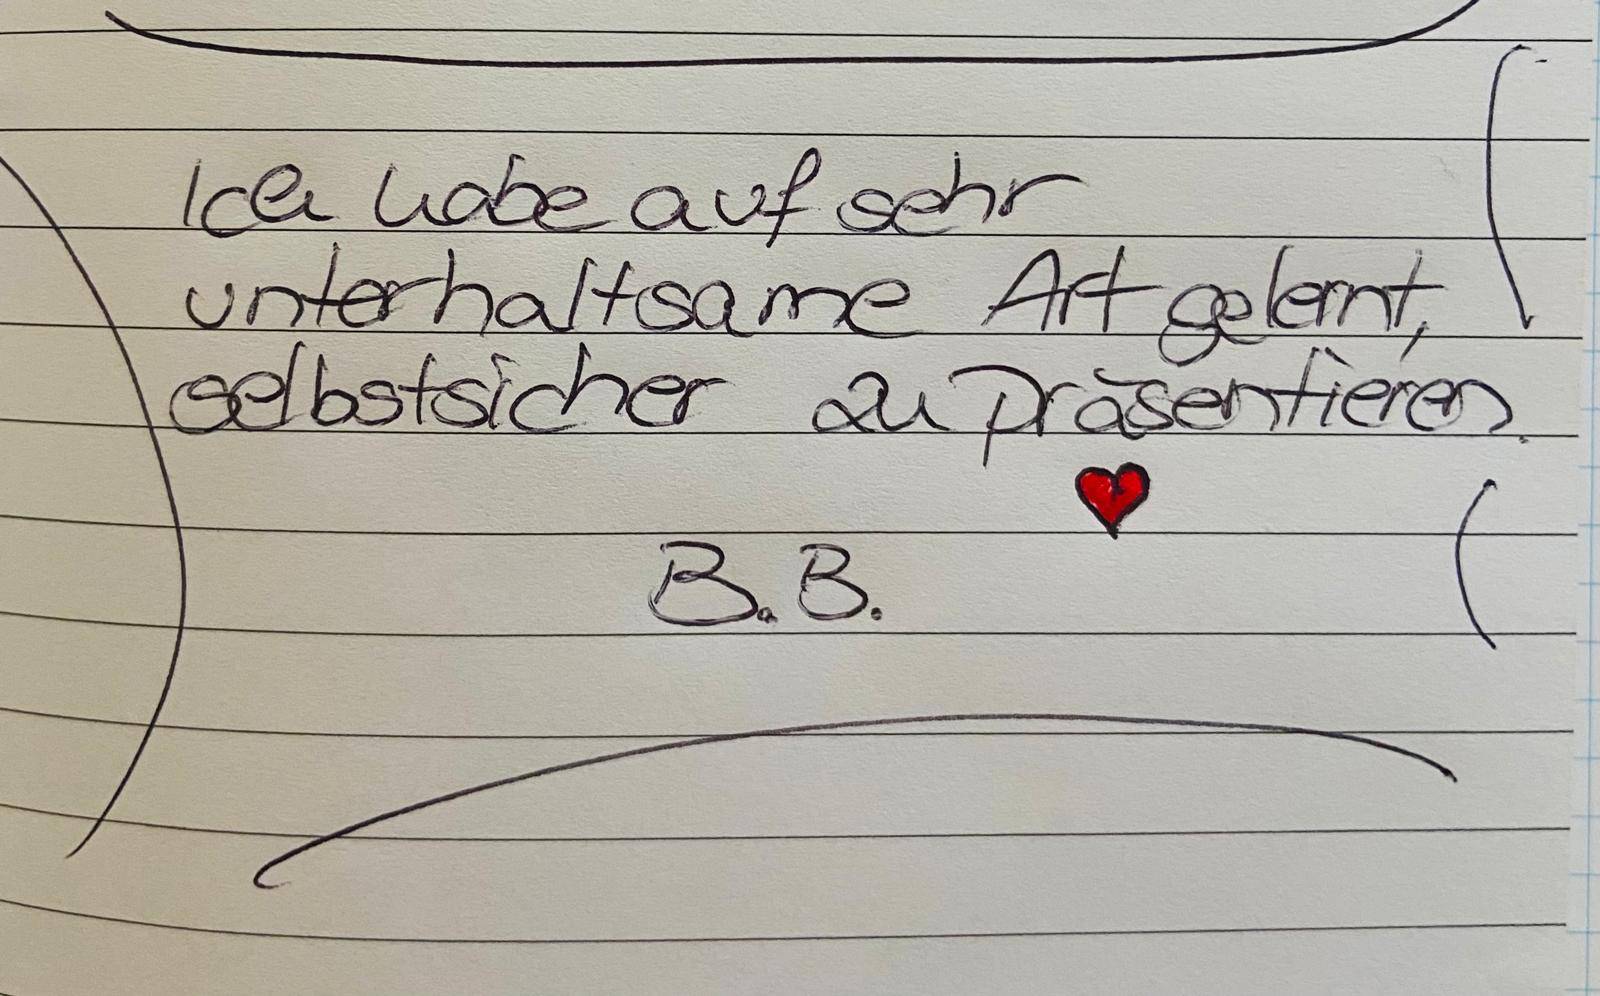 Ich habe auf sehr
unterhaltsame Art gelernt,
selbstsicher zu präsentieren.
B.B.